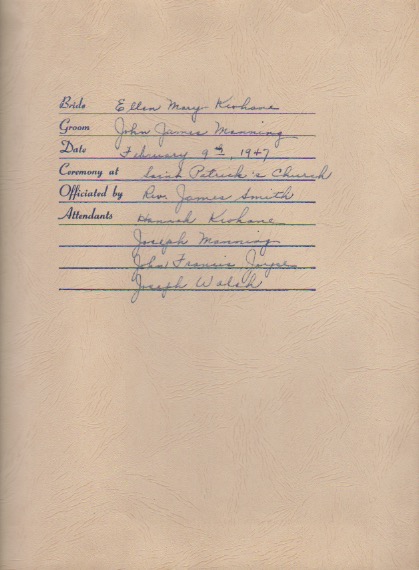 Bride Ellen Mary Kirohane
Groom John James Manning
Date February 9th, 1947
Ceremony at Saint Patrick's Church
Officiated by Rev. James Smith
Attendants Hannah Kirohane
Joseph Manning
John Francis Joyce
Joseph Walsh